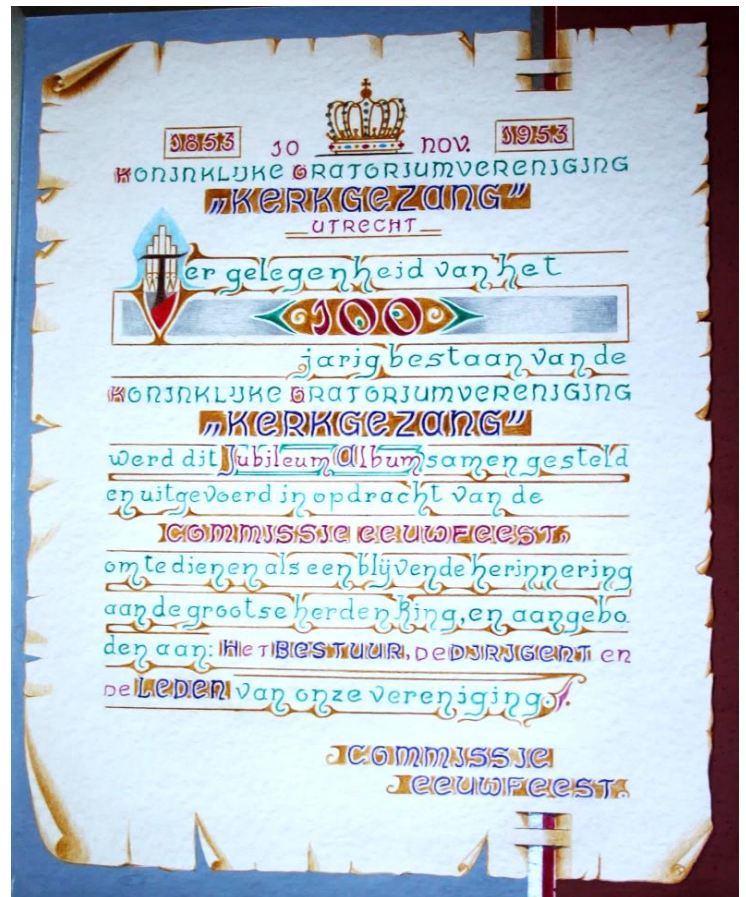 1853 10 NOV. 1953
KONINKLIJKE ORATORIUMVERENIGING
„KERKGEZANG”
UTRECHT
Ter gelegenheid van het
100
jarig bestaan van de
KONINKLIJKE ORATORIUMVERENIGING
„KERKGEZANG”
werd dit Jubileum Album samen gesteld
en uitgevoerd in opdracht van de
COMMISSIE EEUWFEEST,
om te dienen als een blijvende herinnering
aan de grootse herdenking, en aangebo
den aan: HET BESTUUR, DE DIRIGENT en
DE LEDEN van onze vereniging.
COMMISSIE
EEUWFEEST.